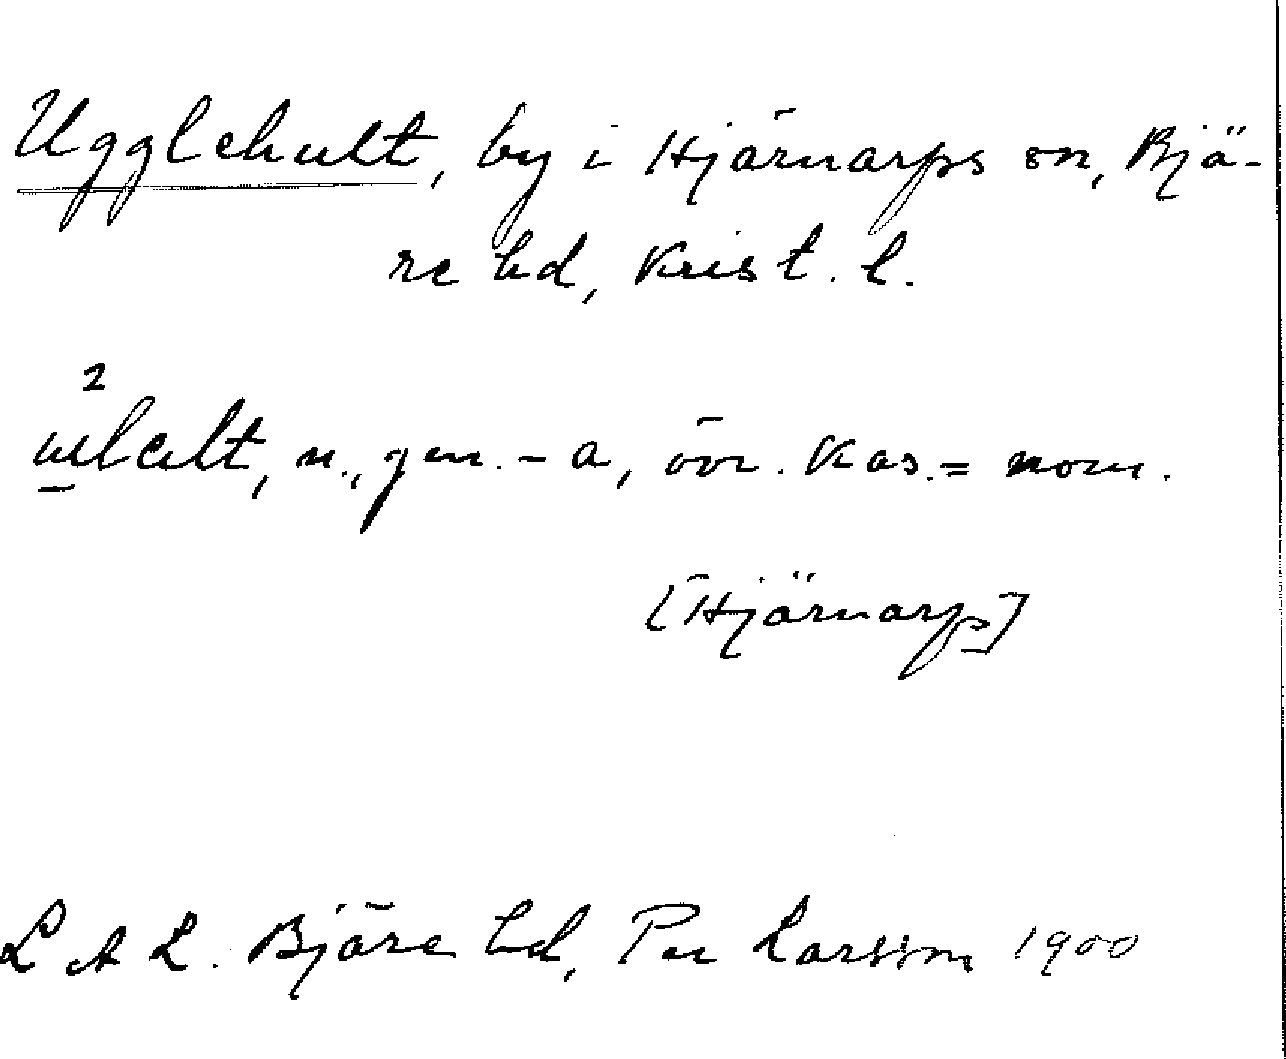 Ugglehult, by i Hjärnarps sn, Bjä-
re hd, Krist. l.
2
n., gen. - a, övr. kas. = nom.
[Hjärnarp]
L A L. Bjäre hd, Per Larsson 1900